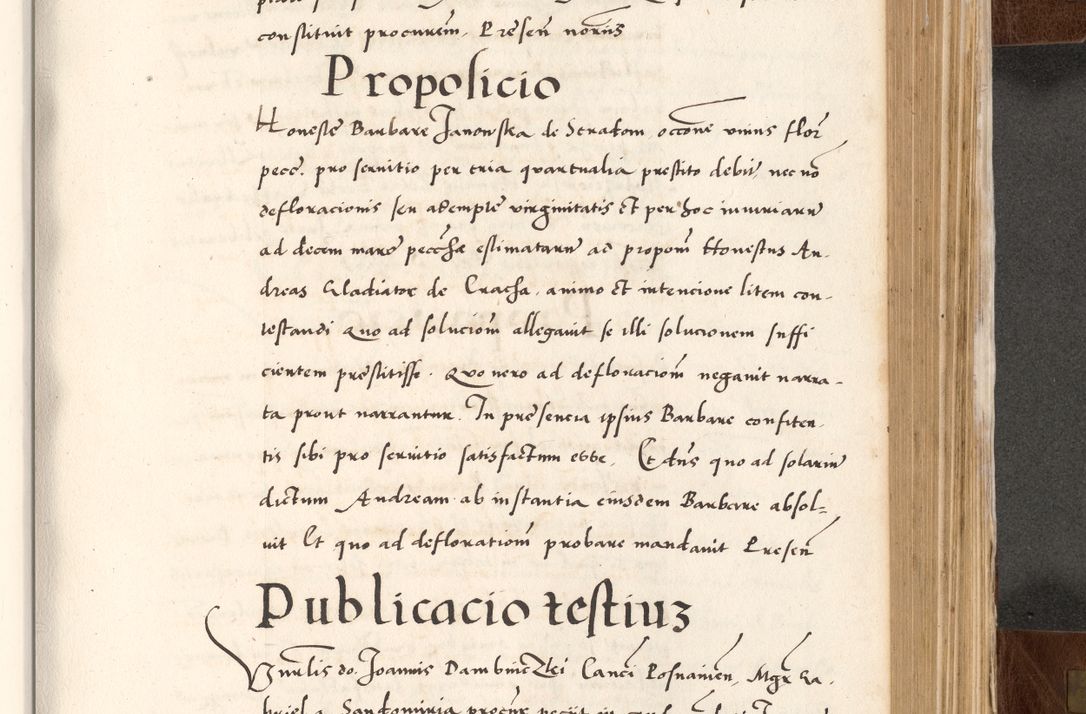 constituit procurem. Presen noriis
Proposicio
Honeste Barbare Janowska de Stradom occone unius flor
pecc. pro servitio per tria quartualia prestito debit, nec no
defloracionis seu adempte virginitatis et per hoc iniuriaru
ad decem marc pecche estimataru ac propom Honestus An-
dreas Gladiator de Cracha. animo et intencione litem con-
testandi Quo ad soluciom allegavit se illi solucionem suffi
cientem prestitisse. Quo vero ad defloraciom negavit narra-
ta prout narrantur. In presencia ipsius Barbare confiten-
tis sibi pro servitio satisfactum esse. Et dns quo ad solariu
dictum Andream ab instantia eiusdem Barbare absol-
vit Et quo ad defloratiom probare mandavit Presen
Publicacio testiuz
Vnrlis do. Joannis Dambniczki Canci Posnanien, Mgr Ga-
briel a Sandomiria procur peciit in